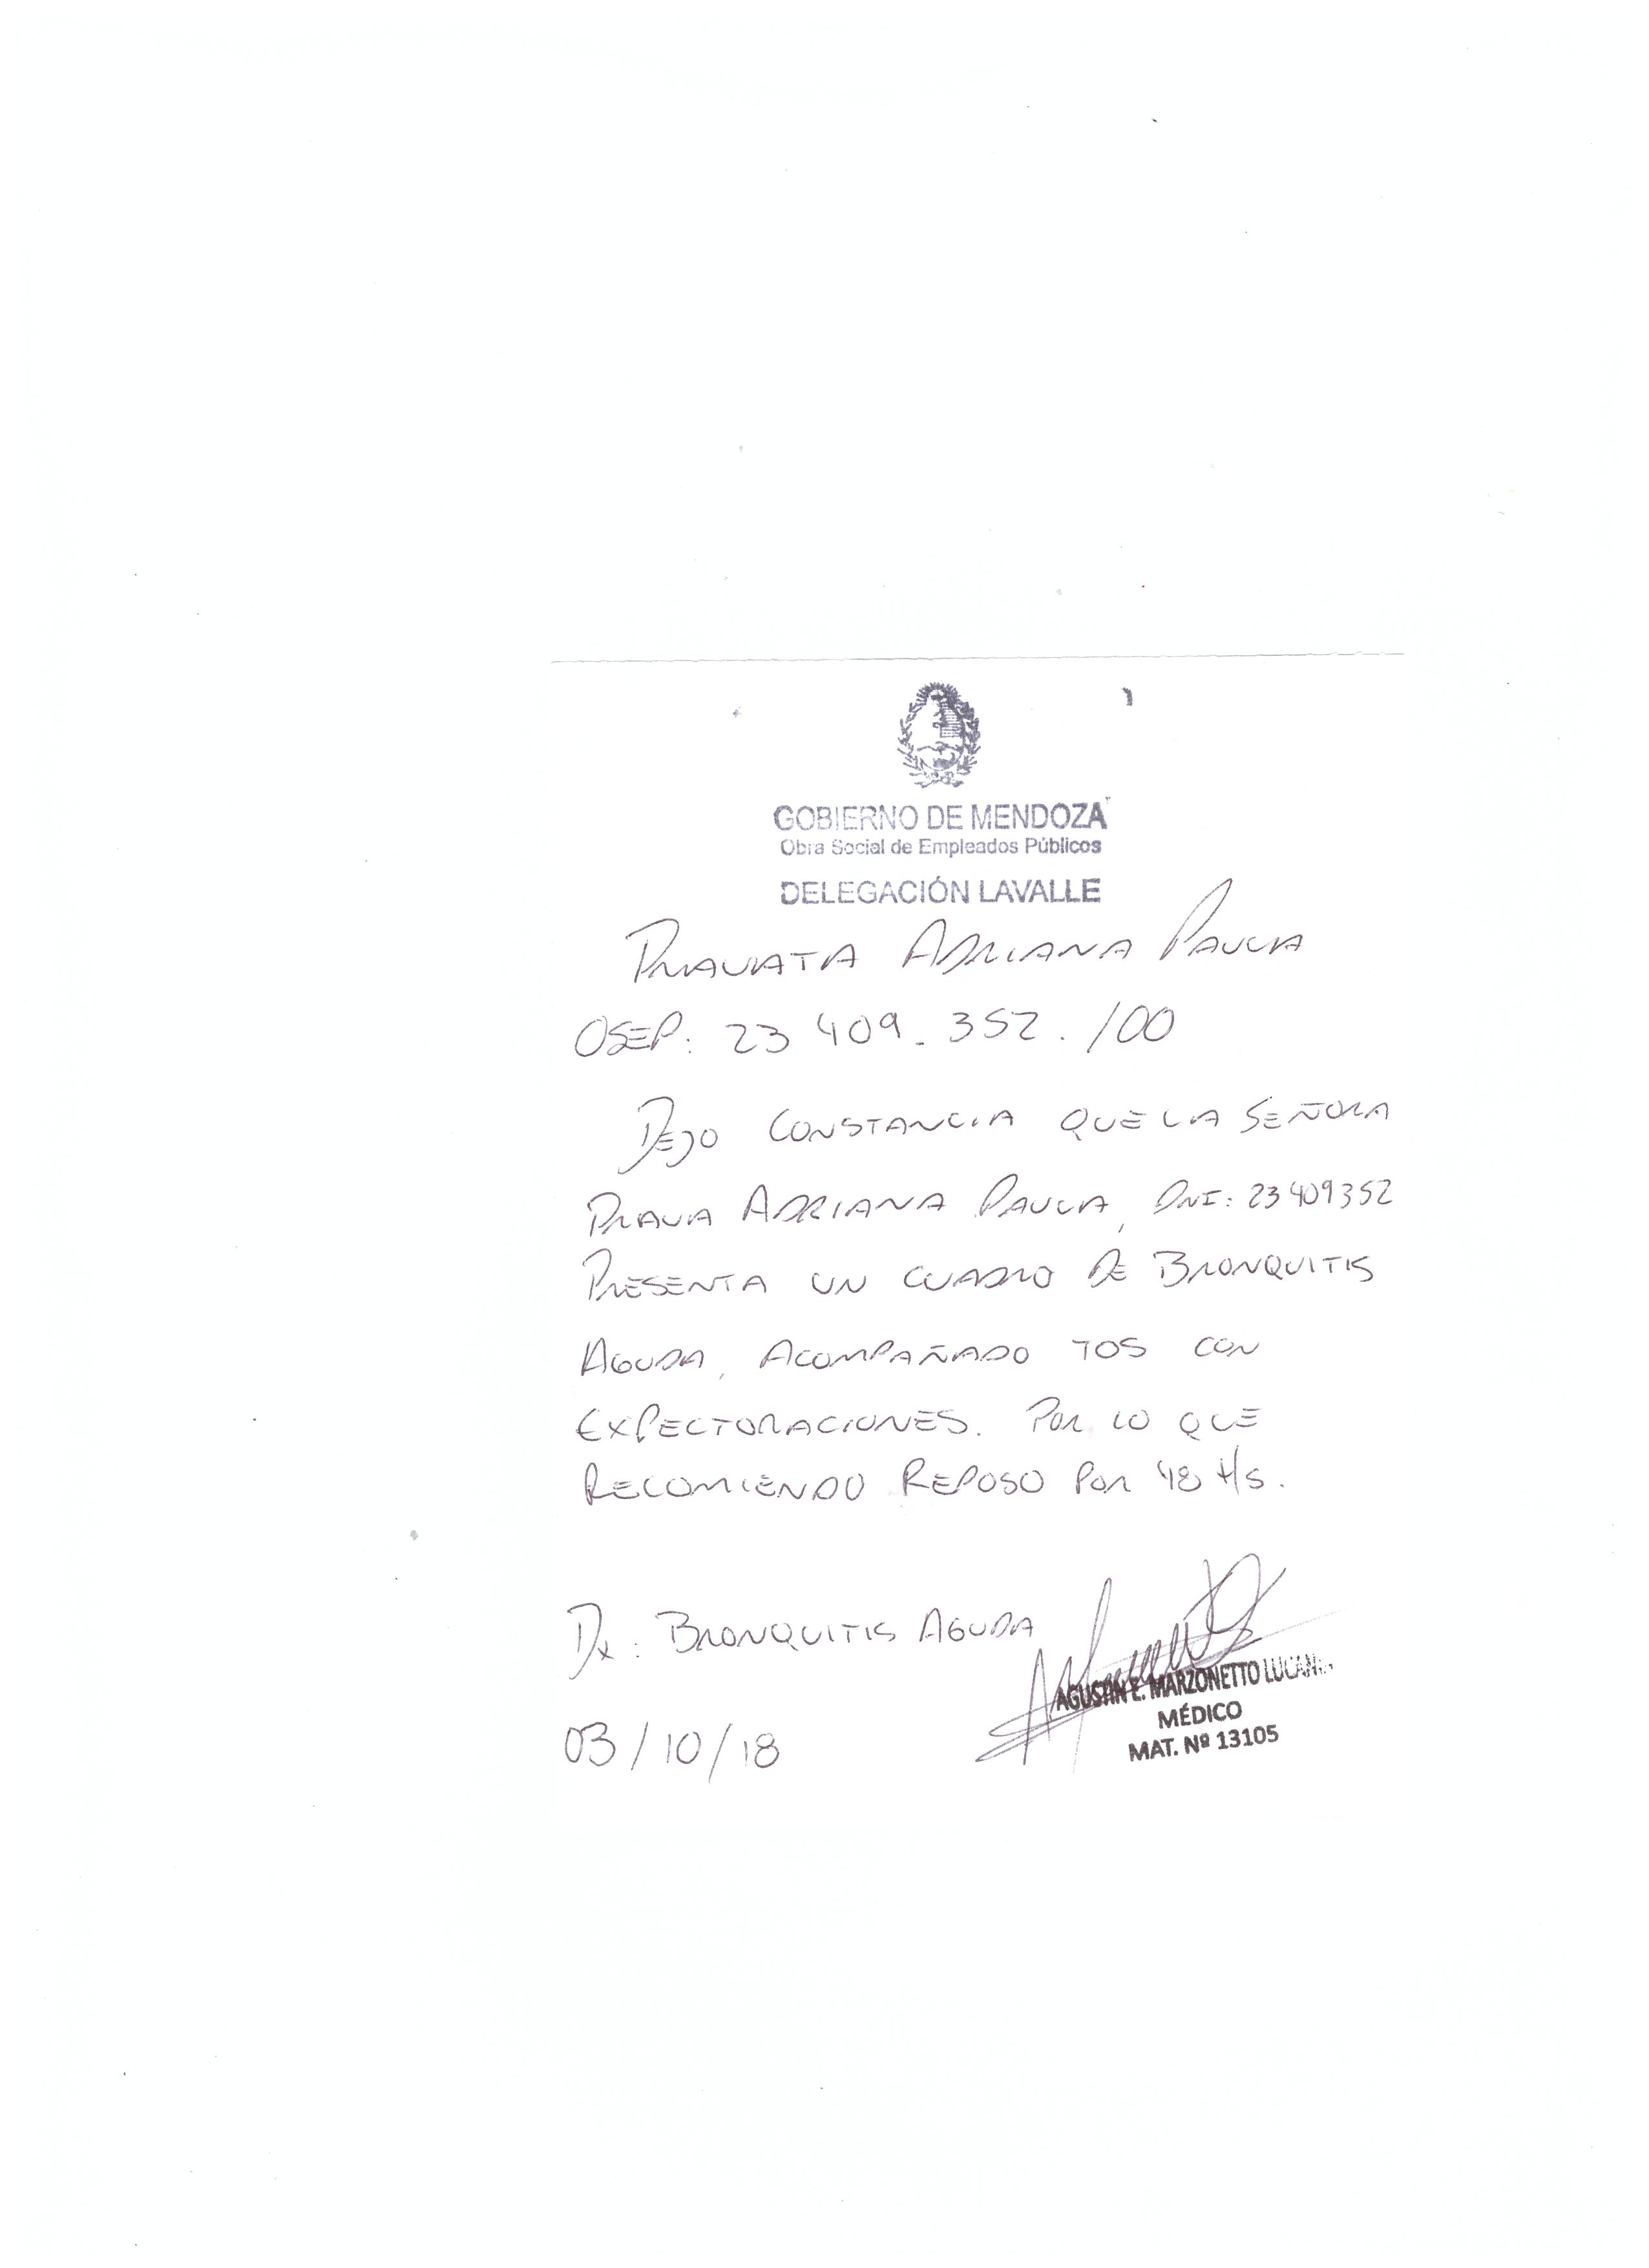 GOBIERNO DE MENDOZA
Obra Social de Empleados Públicos
DELEGACIÓN LAVALLE
ADRIANA PAULA
OSEP: 23 409. 352. /00
DEJO CONSTANCIA QUE LA SEÑORA
ADRIANA PAULA, DNI: 23409352
PRESENTA UN CUADRO DE BRONQUITIS
AGUDA, ACOMPAÑADO TOS CON
EXPECTORACIONES. POR LO QUE
RECOMIENDO REPOSO POR 48 Hs.
Dx: BRONQUITIS AGUDA
AGUSTIN E. MARZONETTO
MÉDICO
MAT. Nº 13105
03/10/18